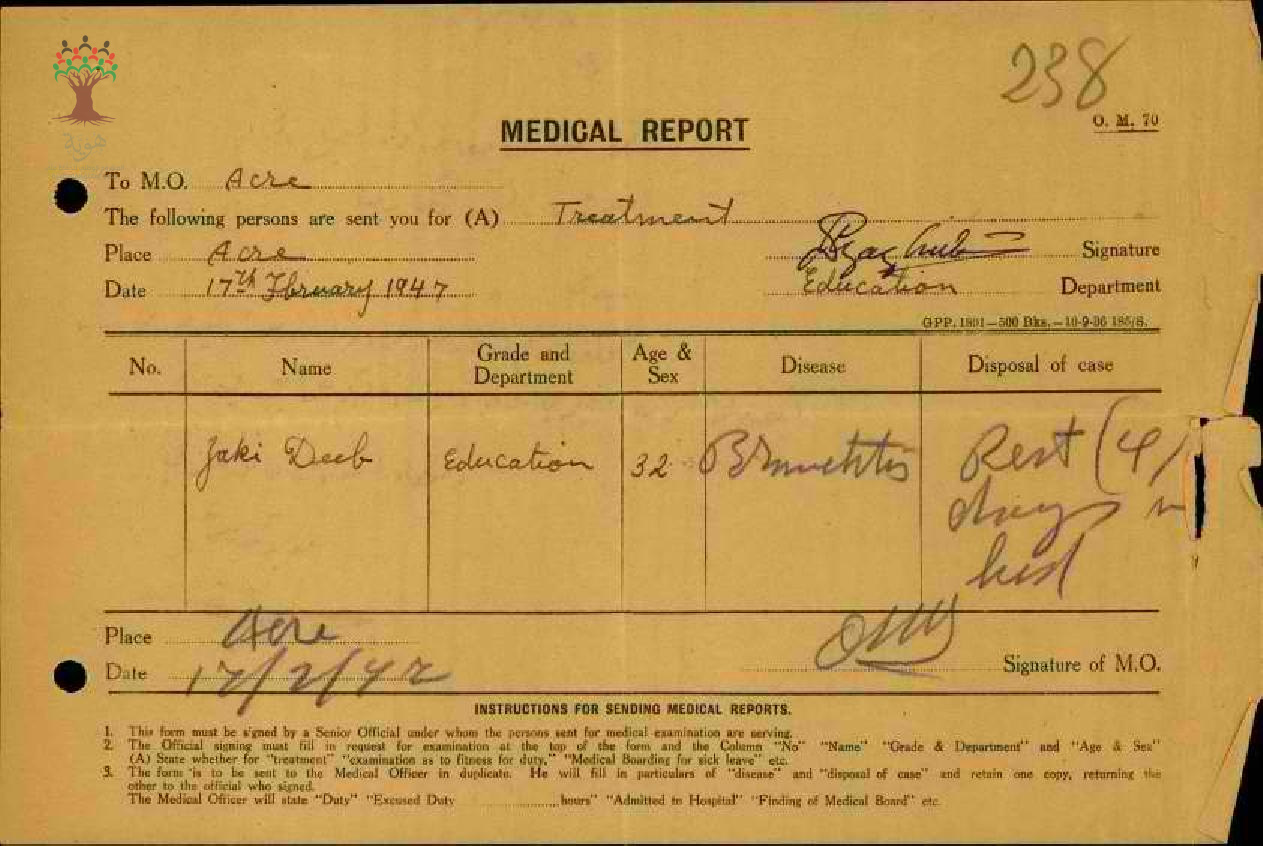 238
هوية
O. M. 70
MEDICAL REPORT
To M.O. Acre
The following persons are sent you for (A) Treatment
Place Acre Signature
Date 17th Fbruary 1947 Education Department
GPP. 1801—500 Bks.—10-9-36 185/S.
No. Name Grade and Department Age & Sex Disease Disposal of case
Jaki Deeb Education 32 Bronchitis Rest (4)
days in
bed
Place Acre
Date 17/2/47 Signature of M.O.
INSTRUCTIONS FOR SENDING MEDICAL REPORTS.
1. This form must be signed by a Senior Official under whom the persons sent for medical examination are serving.
2. The Official signing must fill in request for examination at the top of the form and the Column "No" "Name" "Grade & Department" and "Age & Sex"
(A) State whether for "treatment" "examination as to fitness for duty," "Medical Boarding for sick leave" etc.
3. The form is to be sent to the Medical Officer in duplicate. He will fill in particulars of "disease" and "disposal of case" and retain one copy, returning the
other to the official who signed.
The Medical Officer will state "Duty" "Excused Duty ............ hours" "Admitted to Hospital" "Finding of Medical Board" etc.